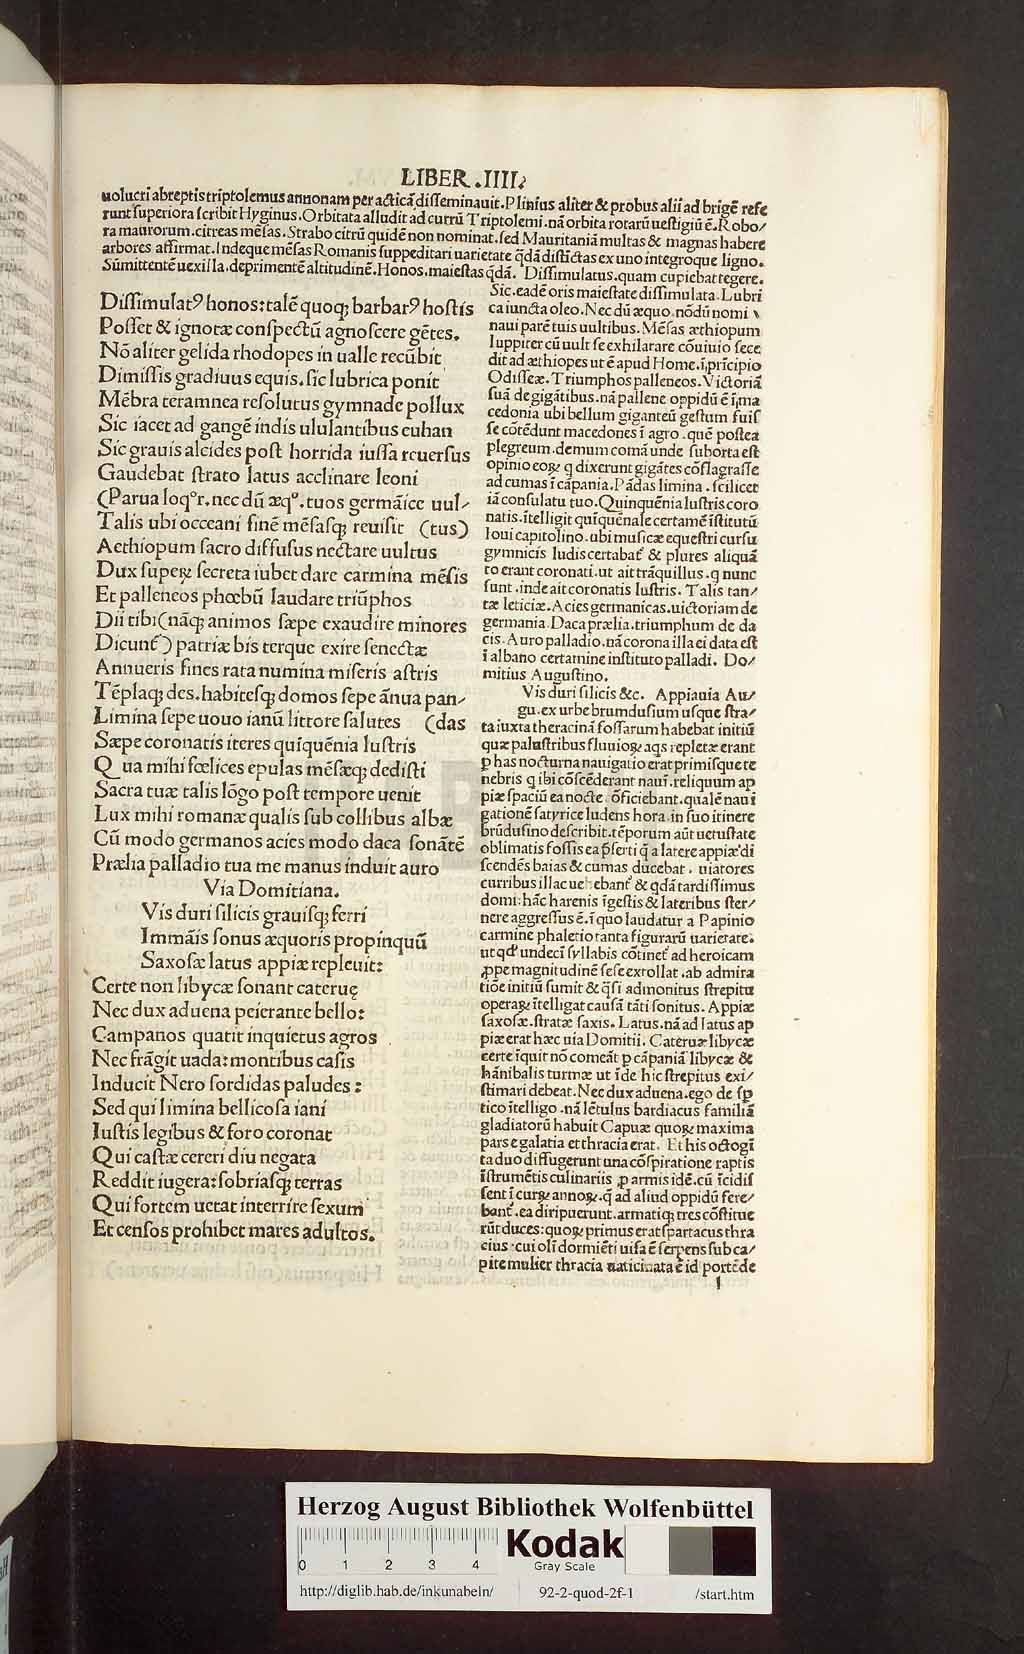 LIBER .IIII.
uolucri abreptis triptolemus annonam per acticā disseminauit. Plinius aliter & probus alii ad brigē refe
runt superiora scribit Hyginus. Orbitata alludit ad currū Triptolemi. nā orbita rotarū uestigiū ē. Robo/
ra maurorum. citreas mēsas. Strabo citrū quidē non nominat. sed Mauritaniā multas & magnas habere
arbores affirmat. Indeque mēsas Romanis suppeditari uarietate q̄dā distīctas ex uno integroque ligno.
Sūmittentē uexilla. deprimentē altitudinē. Honos. maiestas q̄dā. Dissimulatus. quam cupiebat tegere.
Dissimulatꝰ honos: talē quoq; barbarꝰ hostis
Posset & ignotæ conspectū agnoscere gētes.
Nō aliter gelida rhodopes in ualle recūbit
Dimissis gradiuus equis. sic lubrica ponit
Mēbra teramnea resolutus gymnade pollux
Sic iacet ad gangē indis ululantibus euhan
Sic grauis alcides post horrida iussa reuersus
Gaudebat strato latus acclinare leoni
(Parua loqºr. nec dū æqº. tuos germāice uul/
Talis ubi occeani finē mēsasq; reuisit (tus)
Aethiopum sacro diffusus nectare uultus
Dux superꝝ secreta iubet dare carmina mēsis
Et palleneos phœbū laudare triūphos
Dii tibi (nāq; animos sæpe exaudire minores
Dicunt̄) patriæ bis terque exire senectæ
Annueris fines rata numina miseris astris
Tēplaq; des. habitesq; domos sepe ānua pan/
Limina sepe uouo ianū littore salutes (das
Sæpe coronatis iteres quīquēnia lustris
Qua mihi fœlices epulas mēsæq; dedisti
Sacra tuæ talis lōgo post tempore uenit
Lux mihi romanæ qualis sub collibus albæ
Cū modo germanos acies modo daca sonātē
Prælia palladio tua me manus induit auro
Via Domitiana.
Vis duri silicis grauisq; ferri
Immāis sonus æquoris propinquū
Saxosæ latus appiæ repleuit:
Certe non libycæ sonant cateruę
Nec dux aduena peierante bello:
Campanos quatit inquietus agros
Nec frāgit uada: montibus casis
Inducit Nero sordidas paludes:
Sed qui limina bellicosa iani
Iustis legibus & foro coronat
Qui castæ cereri diu negata
Reddit iugera: sobriasq; terras
Qui fortem uetat interrire sexum
Et censos prohibet mares adultos.
Sic. eadē oris maiestate dissimulata. Lubri
ca iuncta oleo. Nec dū æquo. nōdū nomi
naui parē tuis uultibus. Mēsas æthiopum
Iuppiter cū uult se exhilarare cōuiuio sece
dit ad æthiopes ut ē apud Home. ī prīcipio
Odisseæ. Triumphos palleneos. Victoriā
suā de gigātibus. nā pallene oppidū ē ī ma
cedonia ubi bellum giganteū gestum fuis
se cōtēdunt macedones ī agro. quē postea
plegreum. demum comā unde suborta est
opinio eoꝝ q dixerunt gigātes cōflagrasse
ad cumas ī cāpania. Pādas limina. scilicet
iā consulatu tuo. Quinquēnia lustris coro
natis. ītelligit quīquēnale certamē īstitutū
Ioui capitolino. ubi musicæ equestri cursu
gymnicis ludis certabat̄ & plures aliquā
to erant coronati. ut ait trāquillus. q nunc
sunt. inde ait coronatis lustris. Talis tan/
tæ leticiæ. Acies germanicas. uictoriam de
germania. Daca prælia. triumphum de da
cis. Auro palladio. nā corona illa ei data est
ī albano certamine instituto palladi. Do/
mitius Augustino.
Vis duri silicis &c. Appia uia Au/
gu. ex urbe brumdusium usque stra/
ta iuxta theracinā fossarum habebat initiū
quæ palustribus fluuioꝝ aqs repletæ erant
ꝑ has nocturna nauigatio erat primisque te
nebris q ibi cōscēderant nauī. reliquum ap
piæ spaciū ea nocte ōficiebant. qualē naui
gationē satyrice ludens hora. in suo itinere
brūdusino describit. tēporum aūt uetustate
oblimatis fossis ea ꝑserti q̄ a latere appiæ di
scendēs baias & cumas ducebat. uiatores
curribus illac uehebant̄ & qdā tardissimus
domi. hāc harenis īgestis & lateribus ster/
nere aggressus ē. ī quo laudatur a Papinio
carmine phaletio tanta figurarū uarietate.
ut qd' undecī syllabis cōtinet̄ ad heroicam
ꝓpe magnitudinē sese extollat. ab admira
tiōe initiū sumit & q̄si admonitus strepitu
operaꝝ ītelligat causā tāti sonitus. Appiæ
saxosæ. stratæ saxis. Latus. nā ad latus ap
piæ erat hæc uia Domitii. Cateruæ libycæ
certe īquit nō comeāt ꝑ cāpaniā libycæ &
hānibalis turmæ ut īde hic strepitus exi/
stimari debeat. Nec dux aduena. ego de sp
tico ītelligo. nā lētulus bardiacus familiā
gladiatorū habuit Capuæ quoꝝ maxima
pars e galatia et thracia erat. Et his octogī
ta duo diffugerunt una cōspiratione raptis
īstrumētis culinariis ꝑ armis idē. cū īcidis
sent ī curꝝ annoꝝ. q̄ ad aliud oppidū fere/
bant̄. ea diripuerunt. armatiq; tres cōstitue
rūt duces: quoꝝ primus erat spartacus thra
cius. cui olī dormiēti uisa ē serpens sub ca/
pite mulier thracia uaticinata ē id portēde
l
Herzog August Bibliothek Wolfenbüttel
0 1 2 3 4
Kodak
Gray Scale
http://diglib.hab.de/inkunabeln/ 92-2-quod-2f-1 /start.htm